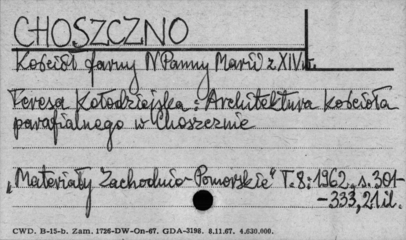 CHOSZCZNO
Kościół farny NPanny Marii z XIV w.
Teresa Kołodziejska: Architektura kościoła
parafialnego w Choszcznie
„Materiały Zachodnio-Pomorskie" T.8:1962, s.301-
-333, 21 il.
CWD. B-15-b. Zam. 1726-DW-On-67. GDA-3198. 8.11.67. 4.630.000.